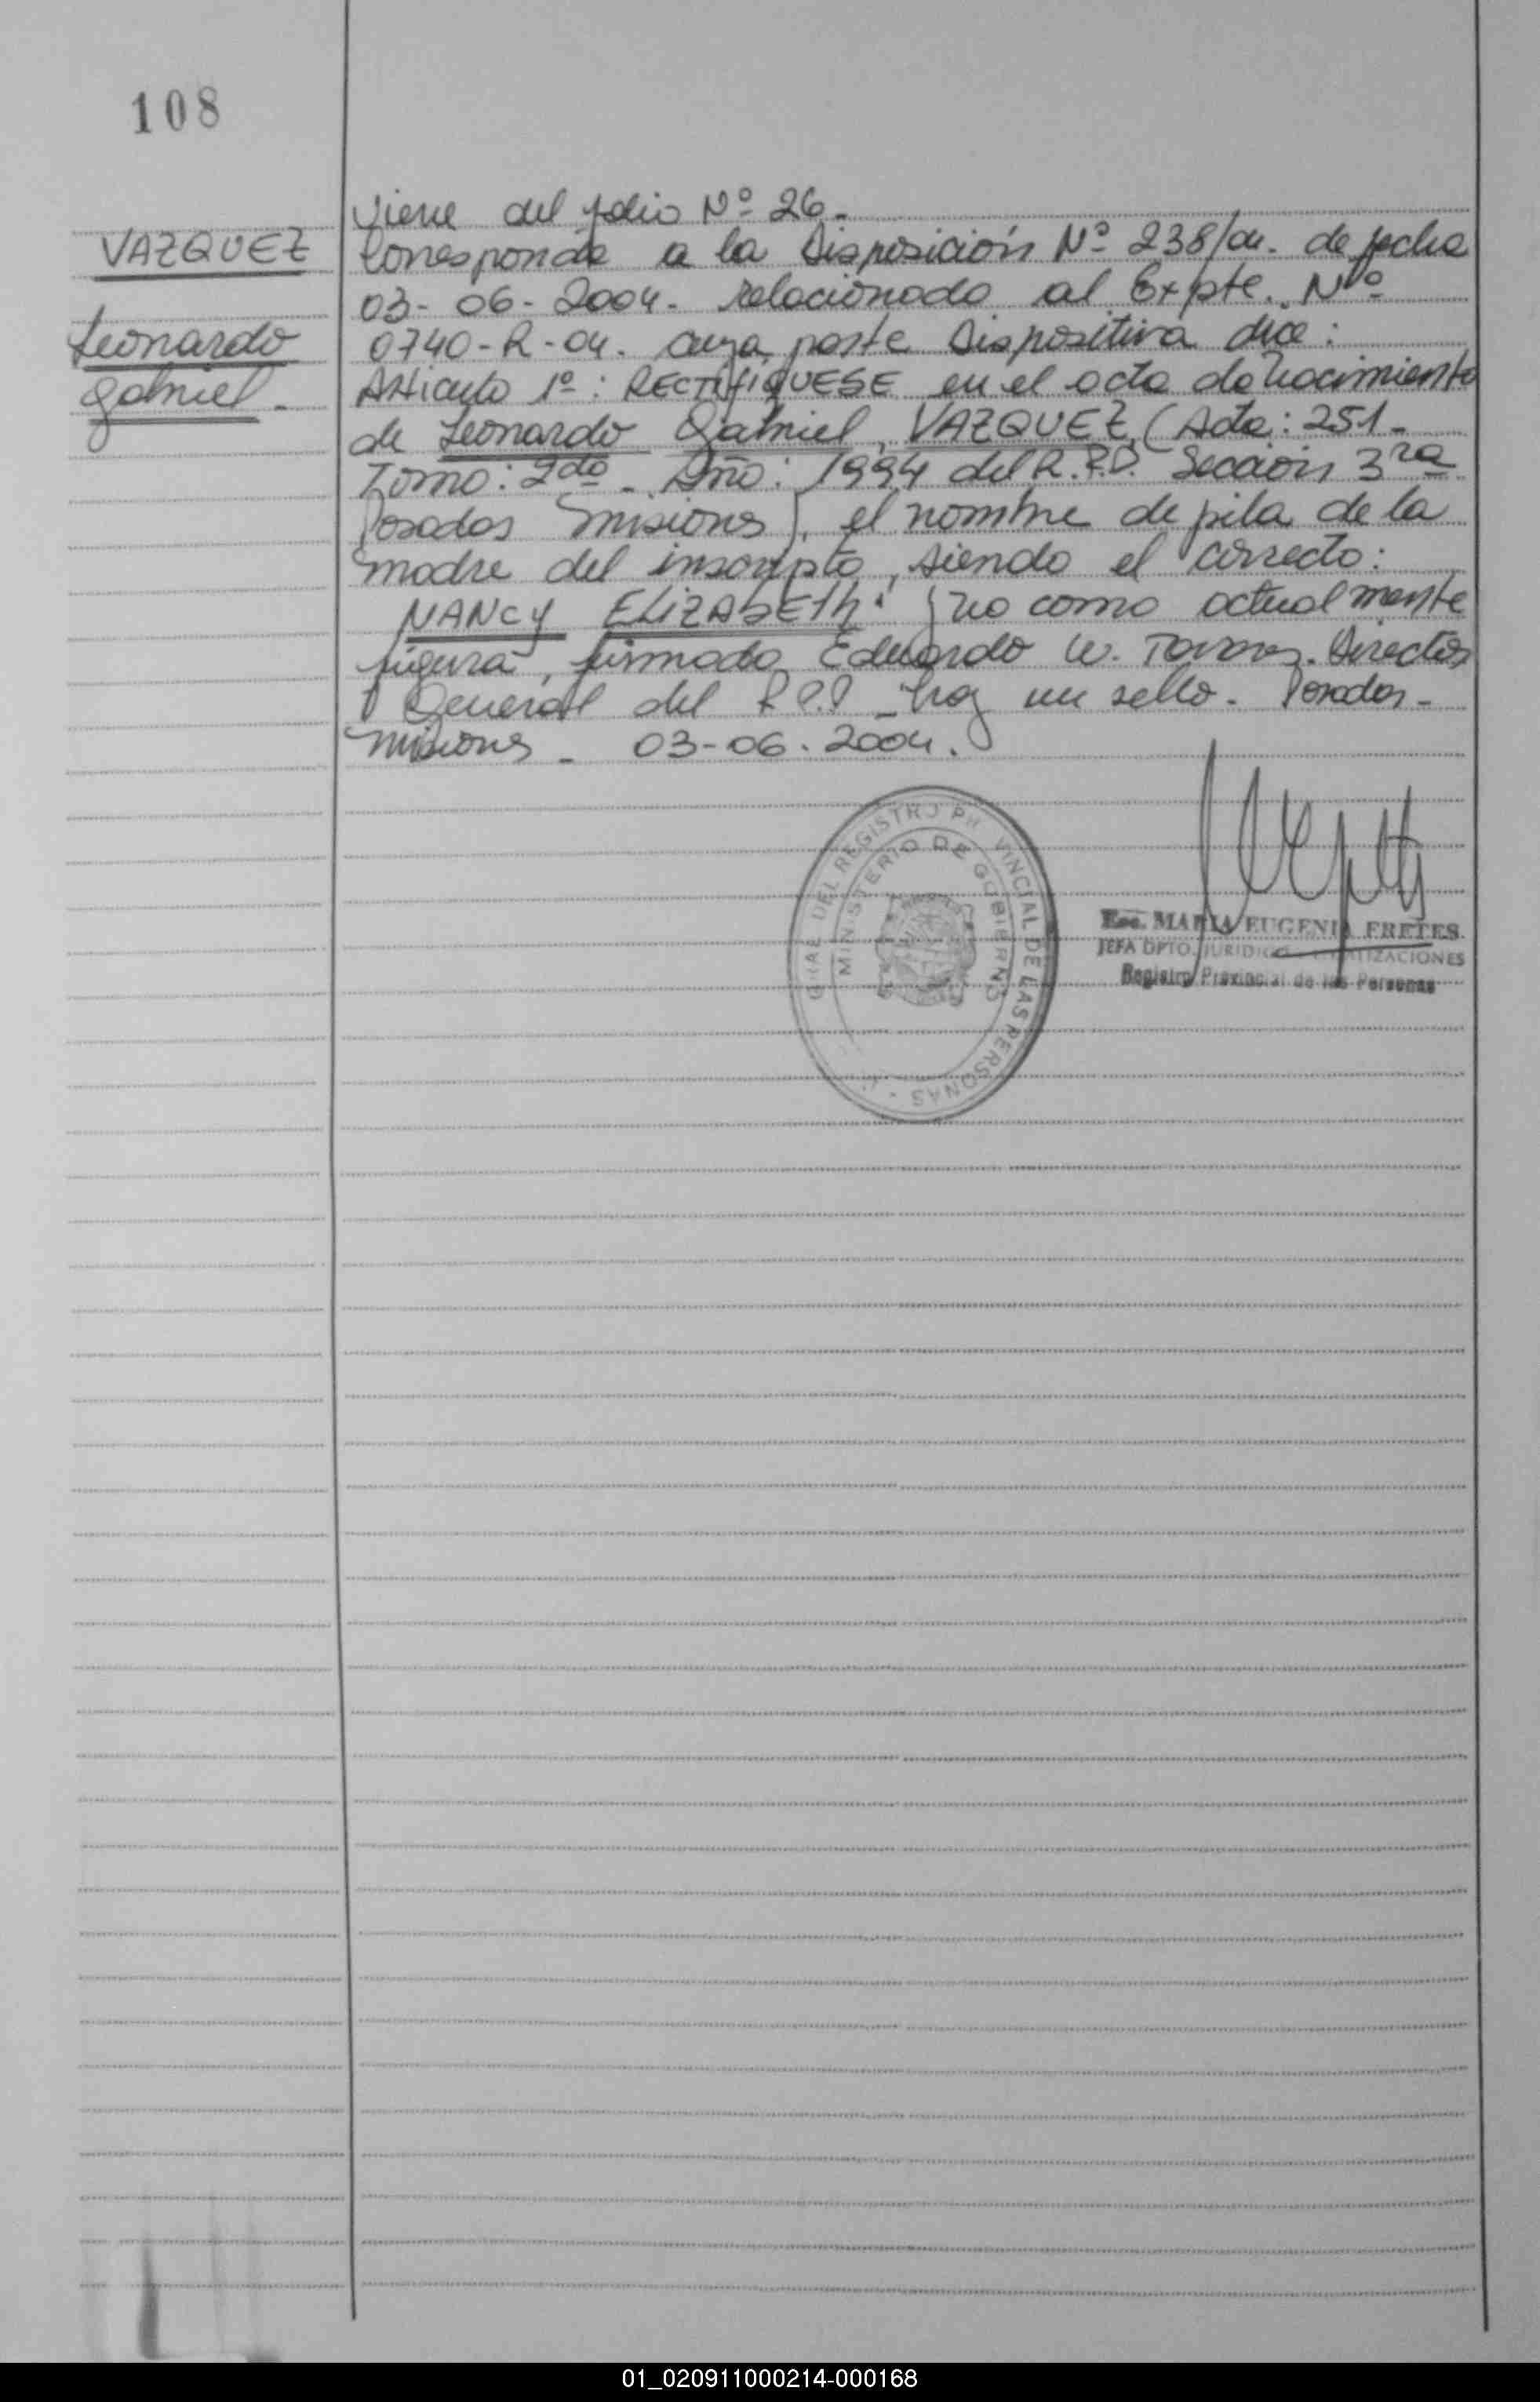 108
VAZQUEZ
Leonardo
Gabriel -
Viene del folio Nº 26 -
Corresponde a la Disposición Nº 238/04. de fecha
03- 06- 2004 - relacionado al Expte. Nº
0740-R-04. cuya parte Dispositiva dice :
Articulo 1º : RECTIFIQUESE en el acta de Nacimiento
de Leonardo Gabriel, VAZQUEZ, (Acta: 251 -
Tomo: 2do - Año: 1994 del R.P.P. Sección 3ra
Posadas Misiones), el nombre de pila de la
madre del inscripto, siendo el correcto:
NANCY ELIZABETh" y no como actualmente
figura, firmado Eduardo W. Director
General del R.P.P - hay un sello - Posadas -
Misiones - 03-06-2004.
GRAL DEL REGISTRO PROVINCIAL DE LAS PERSONAS
MINISTERIO DE GOBIERNO
Esc. MARIA EUGENIA FRETES
JEFA DPTO. JURIDICO
Registro Provincial de las Personas
01_020911000214-000168